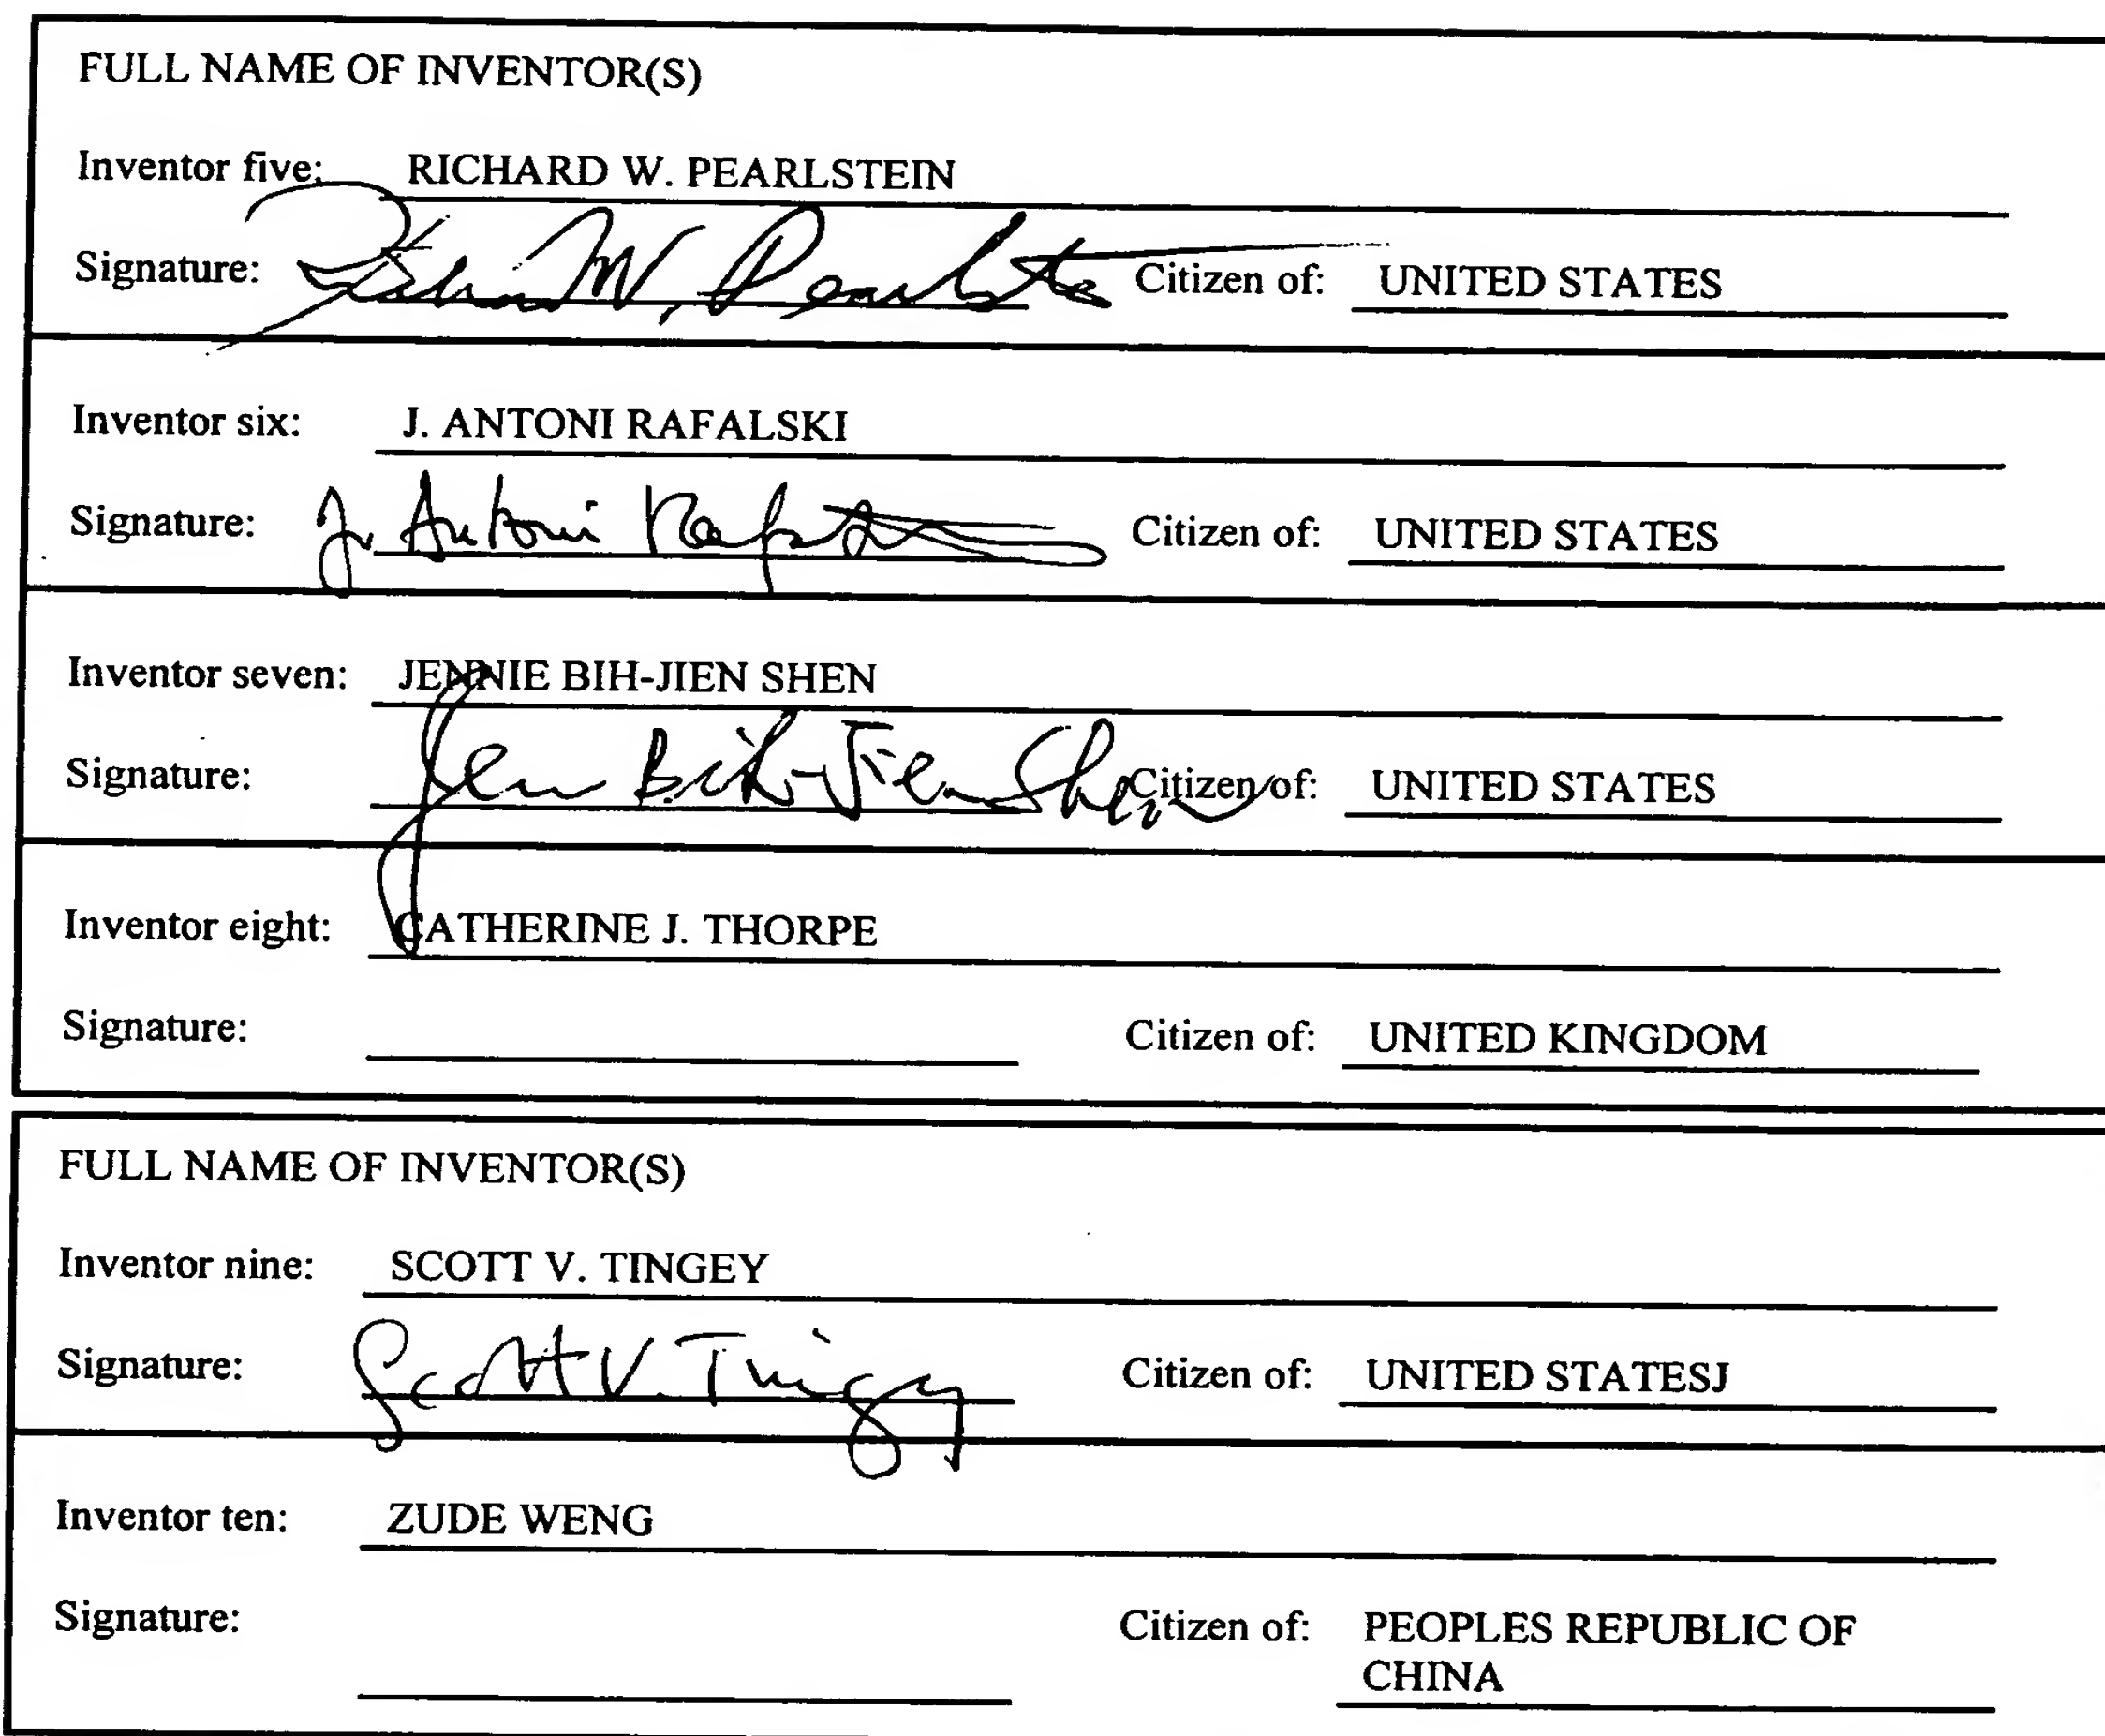 FULL NAME OF INVENTOR(S)
Inventor five: RICHARD W. PEARLSTEIN
Signature: Richard W. Pearlstein Citizen of: UNITED STATES
Inventor six: J. ANTONI RAFALSKI
Signature: J. Antoni Rafalski Citizen of: UNITED STATES
Inventor seven: JENNIE BIH-JIEN SHEN
Signature: Jennie Bih-Jien Shen Citizen of: UNITED STATES
Inventor eight: CATHERINE J. THORPE
Signature: Citizen of: UNITED KINGDOM
FULL NAME OF INVENTOR(S)
Inventor nine: SCOTT V. TINGEY
Signature: Scott V. Tingey Citizen of: UNITED STATESJ
Inventor ten: ZUDE WENG
Signature: Citizen of: PEOPLES REPUBLIC OF
CHINA